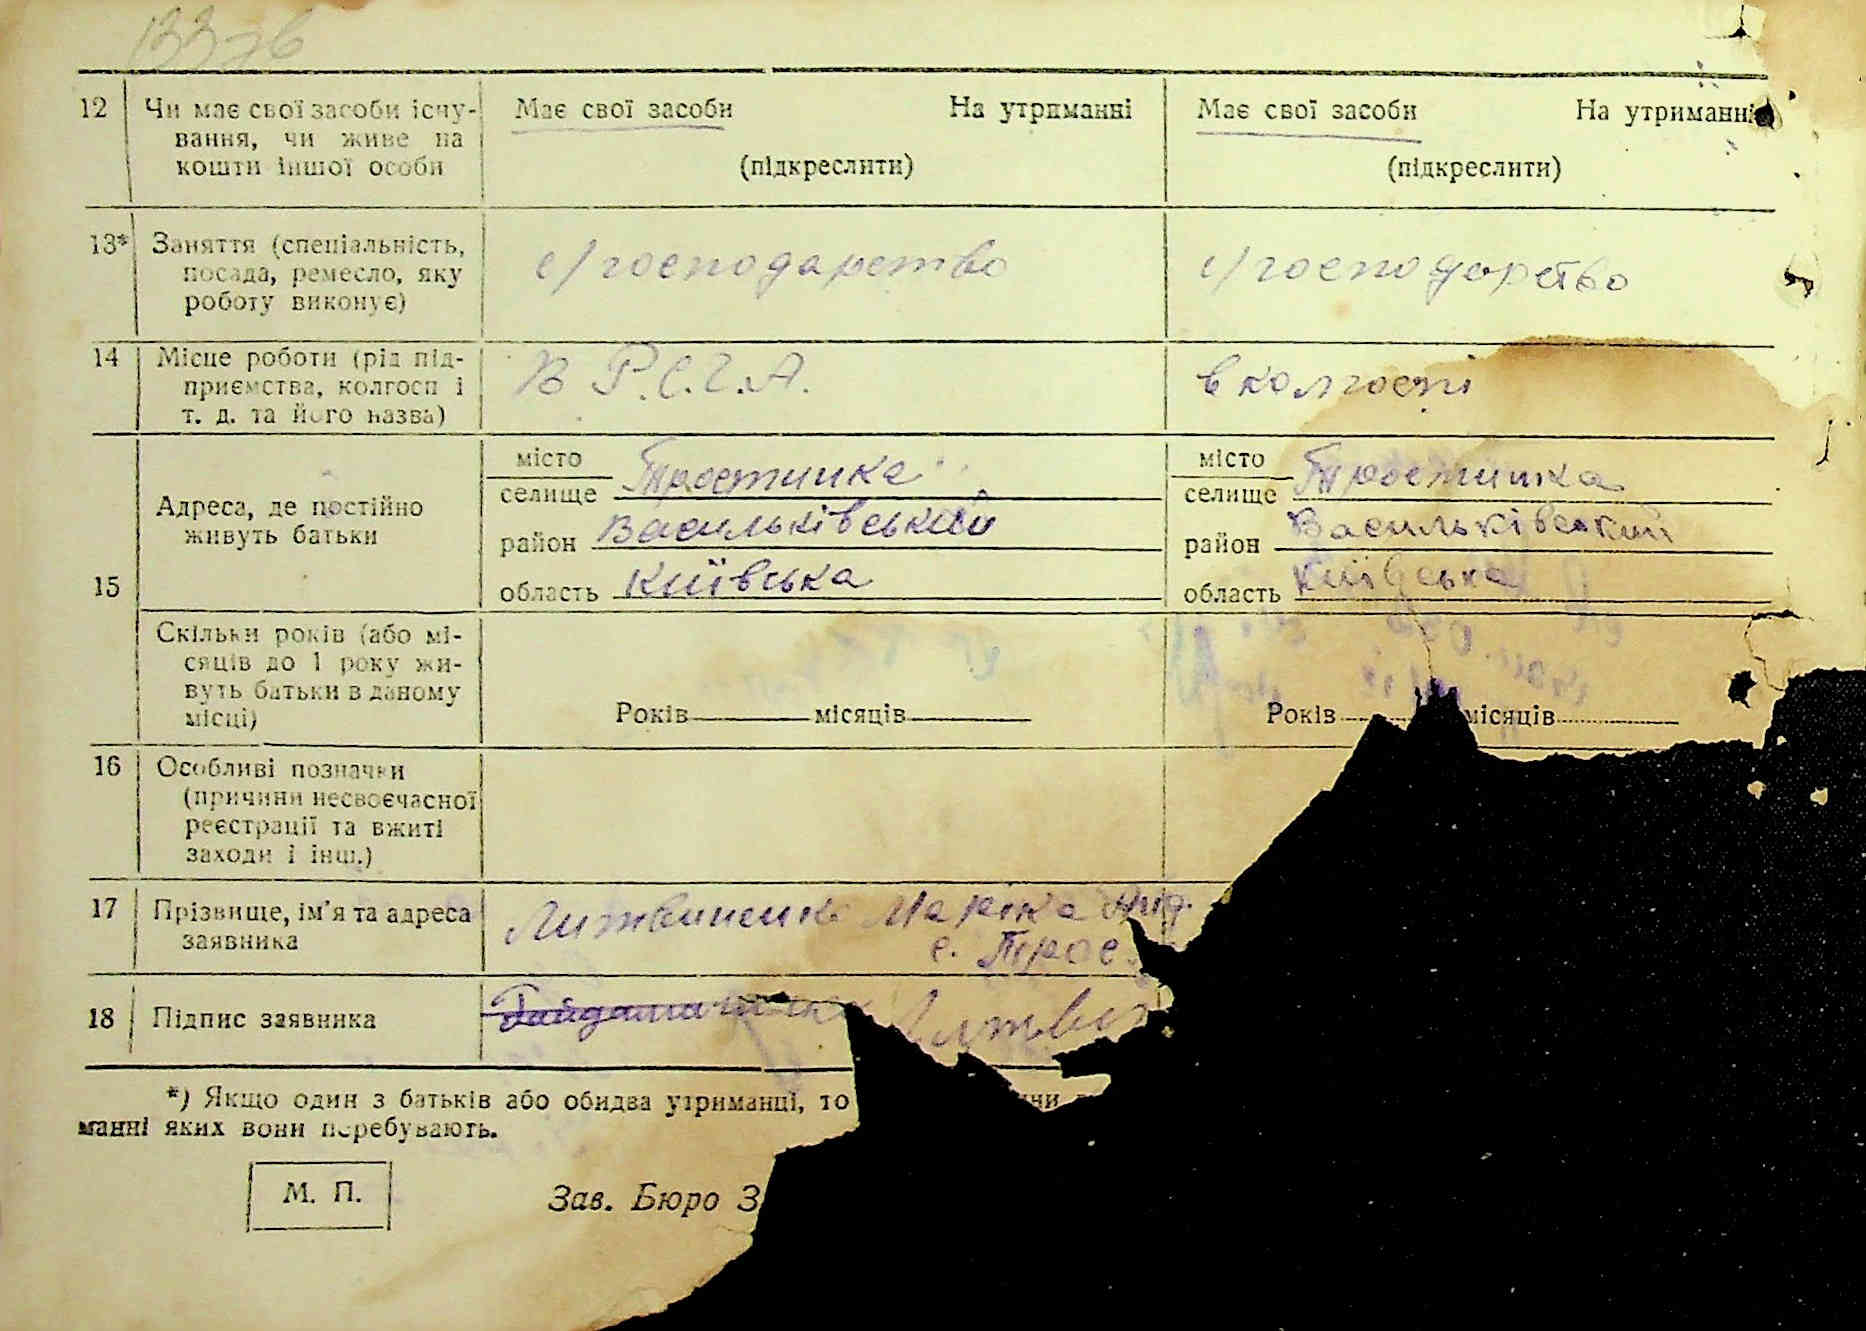 12 Чи має свої засоби існу-
вання, чи живе на
кошти іншої особи
Має свої засоби На утриманні
(підкреслити)
Має свої засоби На утриманні
(підкреслити)
13* Заняття (спеціальність,
посада, ремесло, яку
роботу виконує)
с/господарство
с/господарство
14 Місце роботи (рід під-
приємства, колгосп і
т. д. та його назва)
В Р.С.Ч.А.
в колгоспі
15
Адреса, де постійно
живуть батьки
місто
селище Тростинка
район Васильківський
область Київська
місто
селище Тростинка
район Васильківський
область Київська
Скільки років (або мі-
сяців до 1 року жи-
вуть батьки в даному
місці)
Років місяців
Років місяців
16 Особливі позначки
(причини несвоєчасної
реєстрації та вжиті
заходи і інш.)
17 Прізвище, ім'я та адреса
заявника
Литвиненко Марія
с. Трос
18 Підпис заявника
Литви
*) Якщо один з батьків або обидва утриманці, то
манні яких вони перебувають.
М. П.
Зав. Бюро З